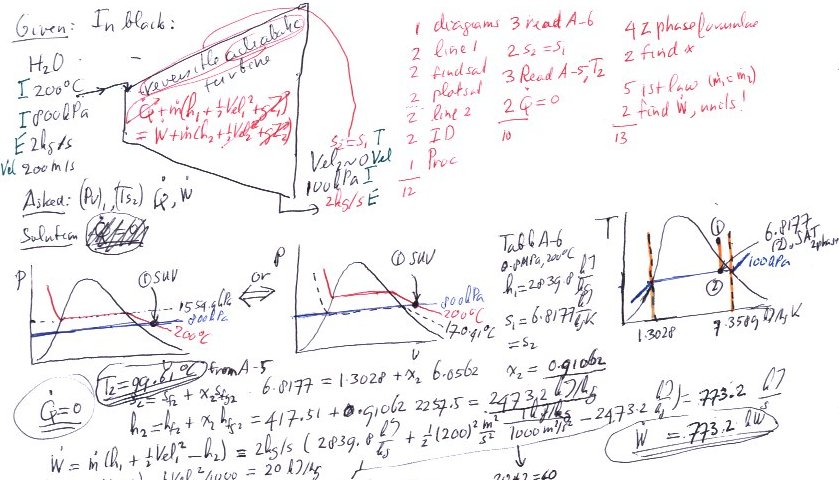 Given: In black:
H₂O
I 200°C
I 800kPa
E 2kg/s
Vel 200m/s
reversible adiabatic
turbine
Q̇ + ṁ(h₁ + ½Vel₁² + gZ₁)
= Ẇ + ṁ(h₂ + ½Vel₂² + gZ₂)
s₂=s₁ I
Vel₂~0 Vel
100kPa I
2kg/s E
1 diagrams
2 line 1
2 find sat
2 plot sat
2 line 2
2 ID
1 Proc
12
3 read A-6
2 s₂=s₁
3 Read A-5, T₂
2 Q̇=0
10
4 2 phase formulae
2 find x
5 1st law (ṁ₁=ṁ₂)
2 find Ẇ, units!
13
Asked: (Pv)₁, (Ts₂) Q̇, Ẇ
Solution
P
① SUV
1554.9kPa
800kPa
200°C
or
P
① SUV
800kPa
200°C
170.41°C
v
Table A-6
0.8MPa, 200°C
h₁=2839.8 kJ/kg
s₁=6.8177 kJ/kgK
=s₂
T
①
②
6.8177
②, SAT 2phase
100kPa
1.3028
7.3589 kJ/kgK
Q̇=0
T₂=99.61°C from A-5
s₂=sf₂ + x₂sfg₂ 6.8177=1.3028+x₂ 6.0562 x₂=0.91062
h₂=hf₂ + x₂hfg₂=417.51+0.91062 2257.5=2473.2 kJ/kg
Ẇ=ṁ(h₁+½Vel₁²-h₂)=2kg/s(2839.8 kJ/kg+½(200)² m²/s² 1kJ/kg/1000m²/s²-2473.2 kJ/kg)=773.2 kJ/s
Ẇ=773.2 kW
Vel²/1000=20 kJ/kg